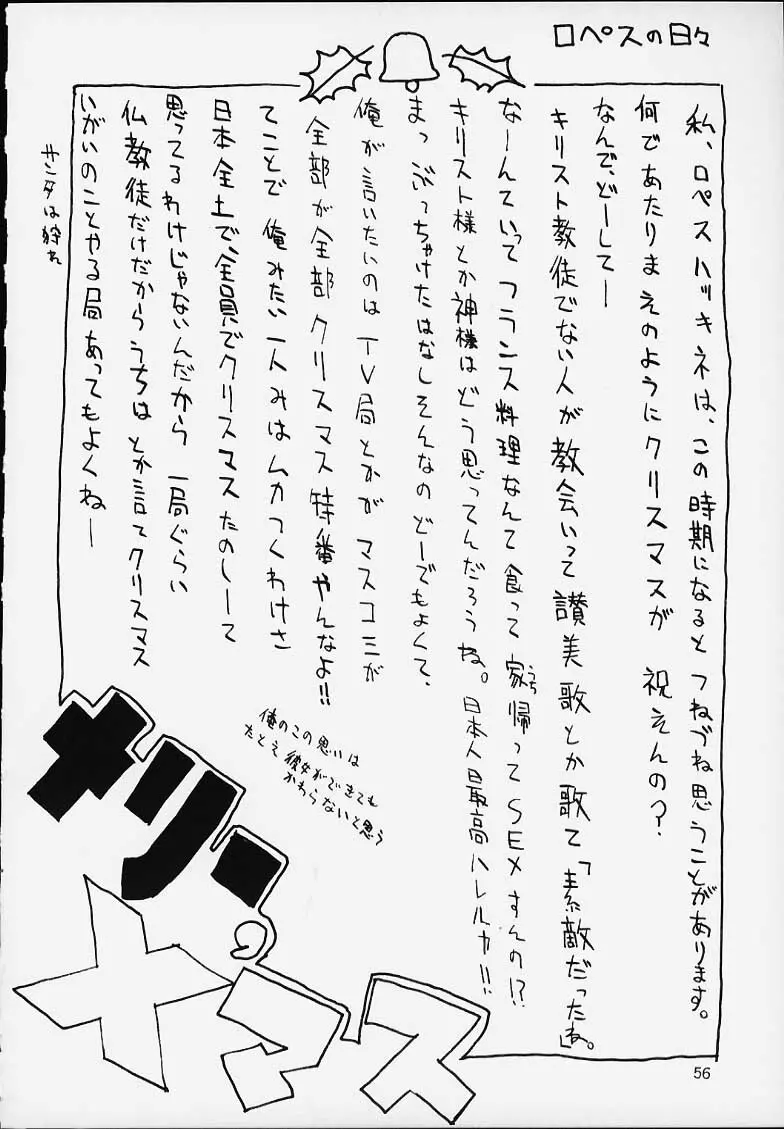 ロペスの日々
私、ロペスハッキネは、この時期になるとつねづね思うことがあります。
何であたりまえのようにクリスマスが祝えんの?
なんで、どーしてー
キリスト教徒でない人が教会いって讃美歌とか歌て「素敵だったね。」
なーんていってフランス料理なんて食って家帰ってSEXすんの!?
うち
キリスト様とか神様はどう思ってんだろうね。日本人最高ハレルヤ!!
まっ ぶっちゃけたはなしそんなのどーでもよくて、
俺が言いたいのはTV局とかがマスコミが
全部が全部クリスマス特番やんなよ!!
てことで俺みたい一人みはムカつくわけさ
日本全土で、全員でクリスマスたのしーて
思ってるわけじゃないんだから一局ぐらい
仏教徒だけだからうちはとか言てクリスマス
いがいのことやる局あってもよくねー
サンタは狩れ
俺のこの思いは
たとえ彼女ができても
かわらないと思う
メリー
Xマス
56